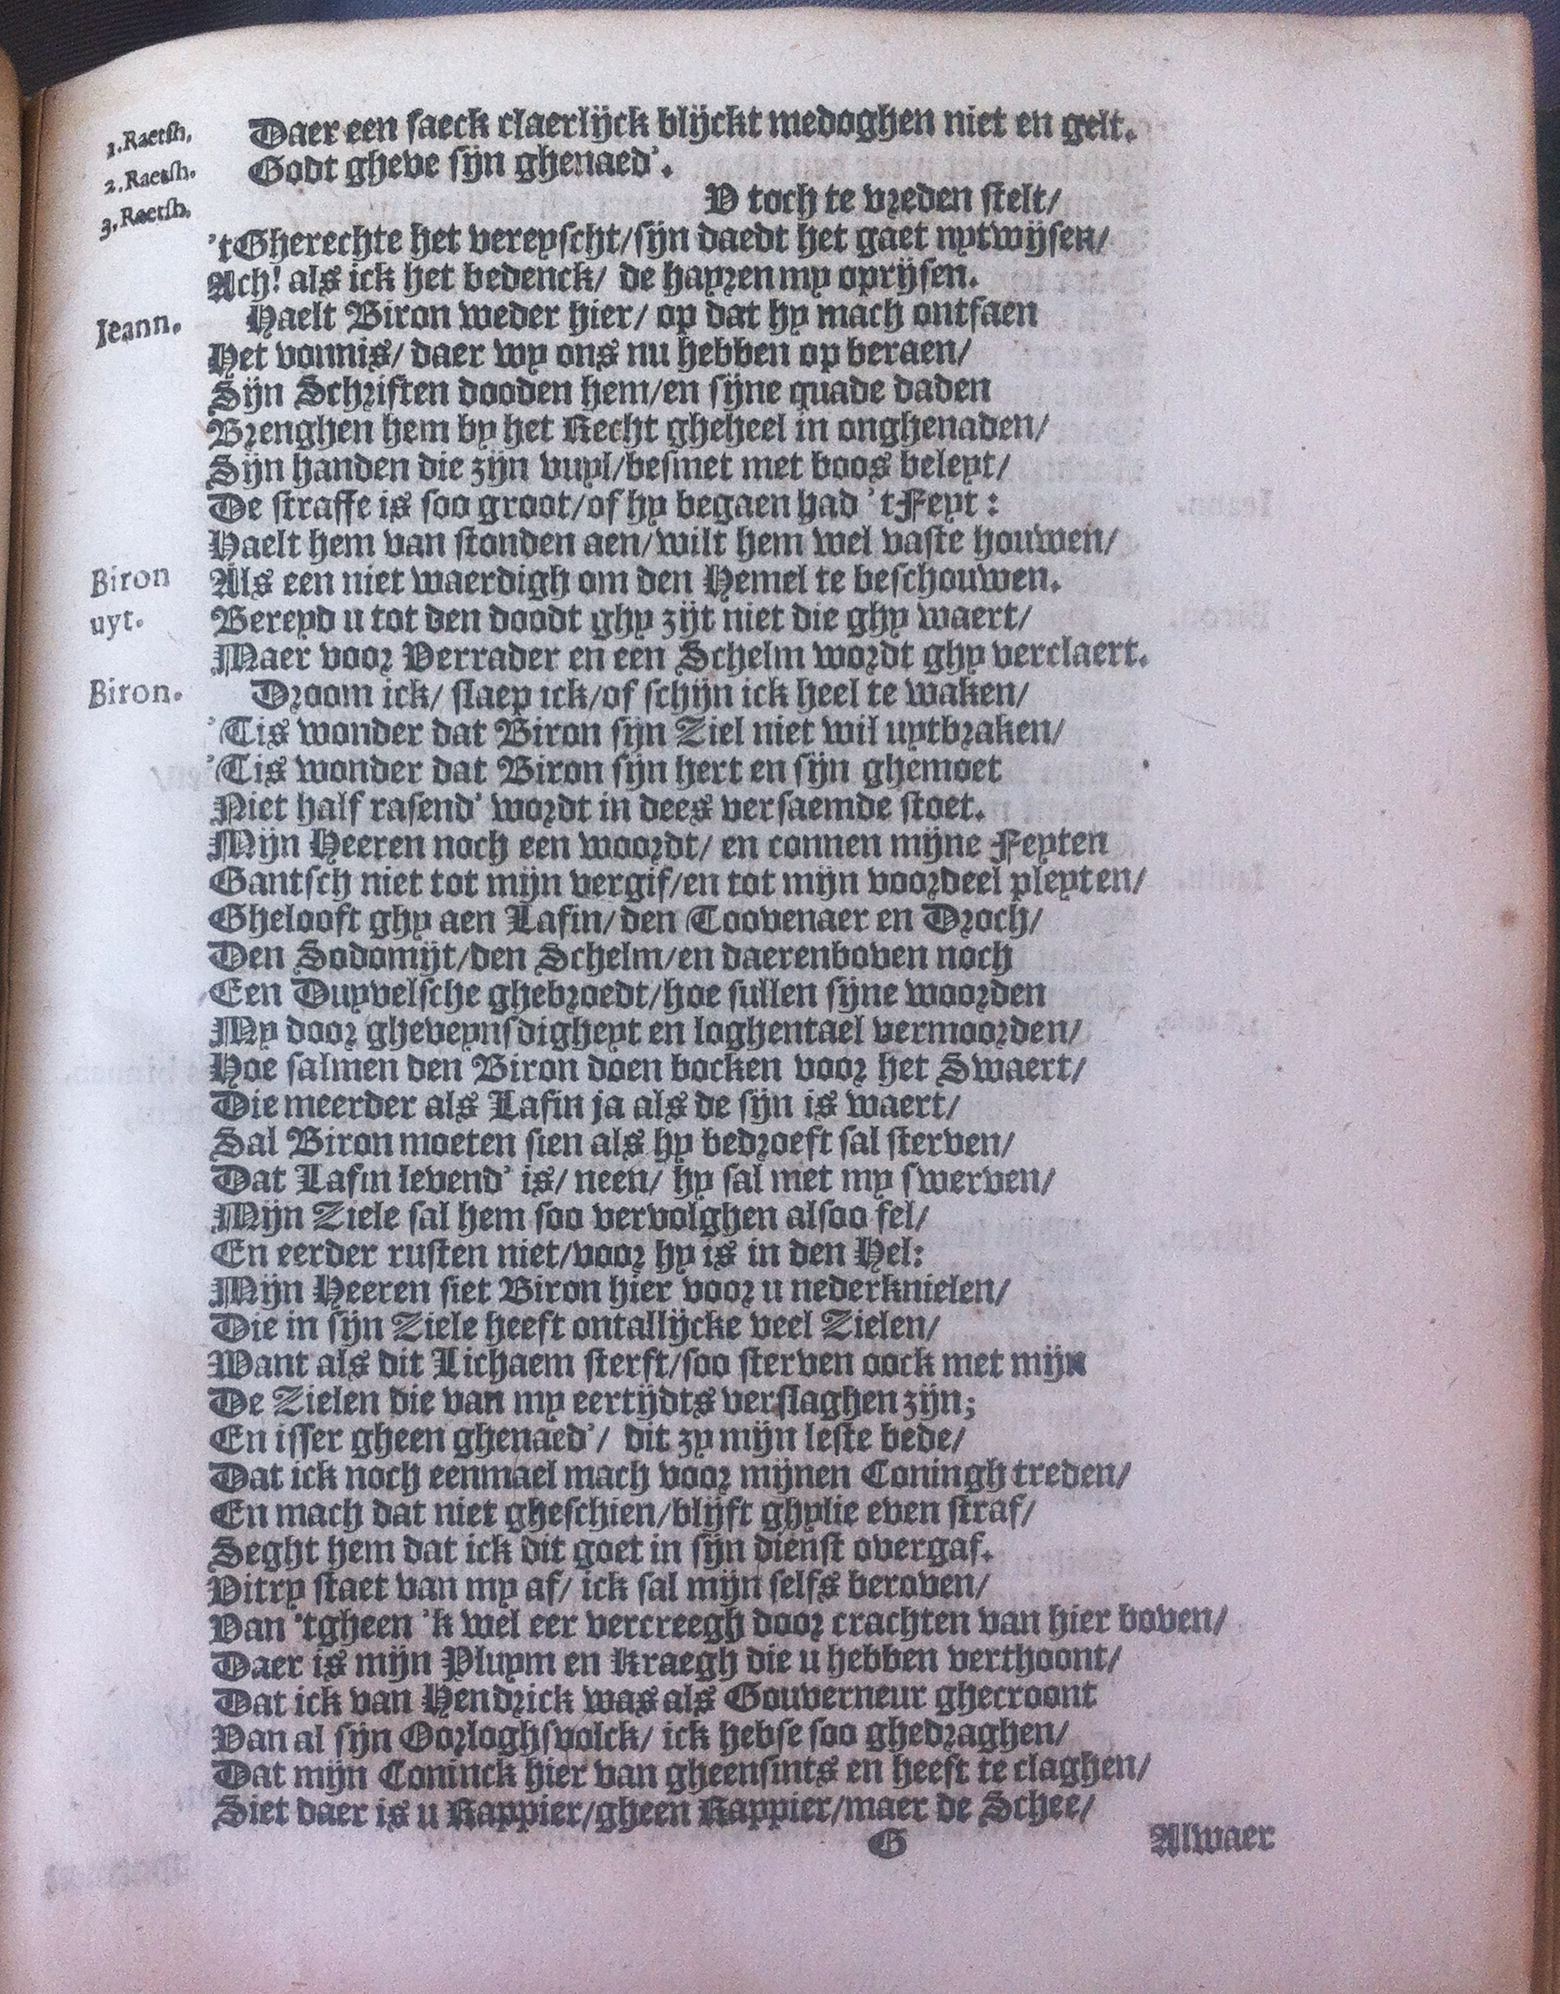 1. Raetsh. Daer een saeck claerlijck blijckt medoghen niet en gelt.
2. Raetsh. Godt gheve sijn ghenaed'.
3. Raetsh. V toch te vreden stelt/
'tGherechte het vereyscht/sijn daedt het gaet uytwijsen/
Ach! als ick het bedenck/ de hayren my oprijsen.
Ieann. Haelt Biron weder hier/ op dat hy mach ontfaen
Het vonnis/ daer wy ons nu hebben op beraen/
Sijn Schriften dooden hem/en sijne quade daden
Brenghen hem by het Recht gheheel in onghenaden/
Sijn handen die zijn vuyl/besmet met boos beleyt/
De straffe is soo groot/of hy begaen had 'tFeyt:
Haelt hem van stonden aen/wilt hem wel vaste houwen/
Biron Als een niet waerdigh om den Hemel te beschouwen.
uyt. Bereyd u tot den doodt ghy zijt niet die ghy waert/
Maer voor Verrader en een Schelm wordt ghy verclaert.
Biron. Droom ick/ slaep ick/of schijn ick heel te waken/
'Tis wonder dat Biron sijn Ziel niet wil uytbraken/
'Tis wonder dat Biron sijn hert en sijn ghemoet
Niet half rasend' wordt in dees versaemde stoet.
Mijn Heeren noch een woordt/ en connen mijne Feyten
Gantsch niet tot mijn vergif/en tot mijn voordeel pleyten/
Ghelooft ghy aen Lafin/den Toovenaer en Droch/
Den Sodomijt/den Schelm/en daerenboven noch
Een Duyvelsche ghebroedt/hoe sullen sijne woorden
My door gheveynsdigheyt en loghentael vermoorden/
Hoe salmen den Biron doen bocken voor het Swaert/
Die meerder als Lafin ja als de sijn is waert/
Sal Biron moeten sien als hy bedroeft sal sterven/
Dat Lafin levend' is/ neen/ hy sal met my swerven/
Mijn Ziele sal hem soo vervolghen alsoo fel/
En eerder rusten niet/voor hy is in den Hel:
Mijn Heeren siet Biron hier voor u nederknielen/
Die in sijn Ziele heeft ontallijcke veel Zielen/
Want als dit Lichaem sterft/soo sterven oock met mijn
De Zielen die van my eertijdts verslaghen zijn;
En isser gheen ghenaed'/ dit zy mijn leste bede/
Dat ick noch eenmael mach voor mijnen Coningh treden/
En mach dat niet gheschien/blijft ghylie even straf/
Seght hem dat ick dit goet in sijn dienst overgaf.
Vitry staet van my af/ ick sal mijn selfs beroven/
Van 'tgheen 'k wel eer vercreegh door crachten van hier boven/
Daer is mijn Pluym en Kraegh die u hebben verthoont/
Dat ick van Hendrick was als Gouverneur ghecroont
Van al sijn Oorloghsvolck/ ick hebse soo ghedraghen/
Dat mijn Coninck hier van gheensints en heeft te claghen/
Siet daer is u Rappier/gheen Rappier/maer de Schee/
G Alwaer